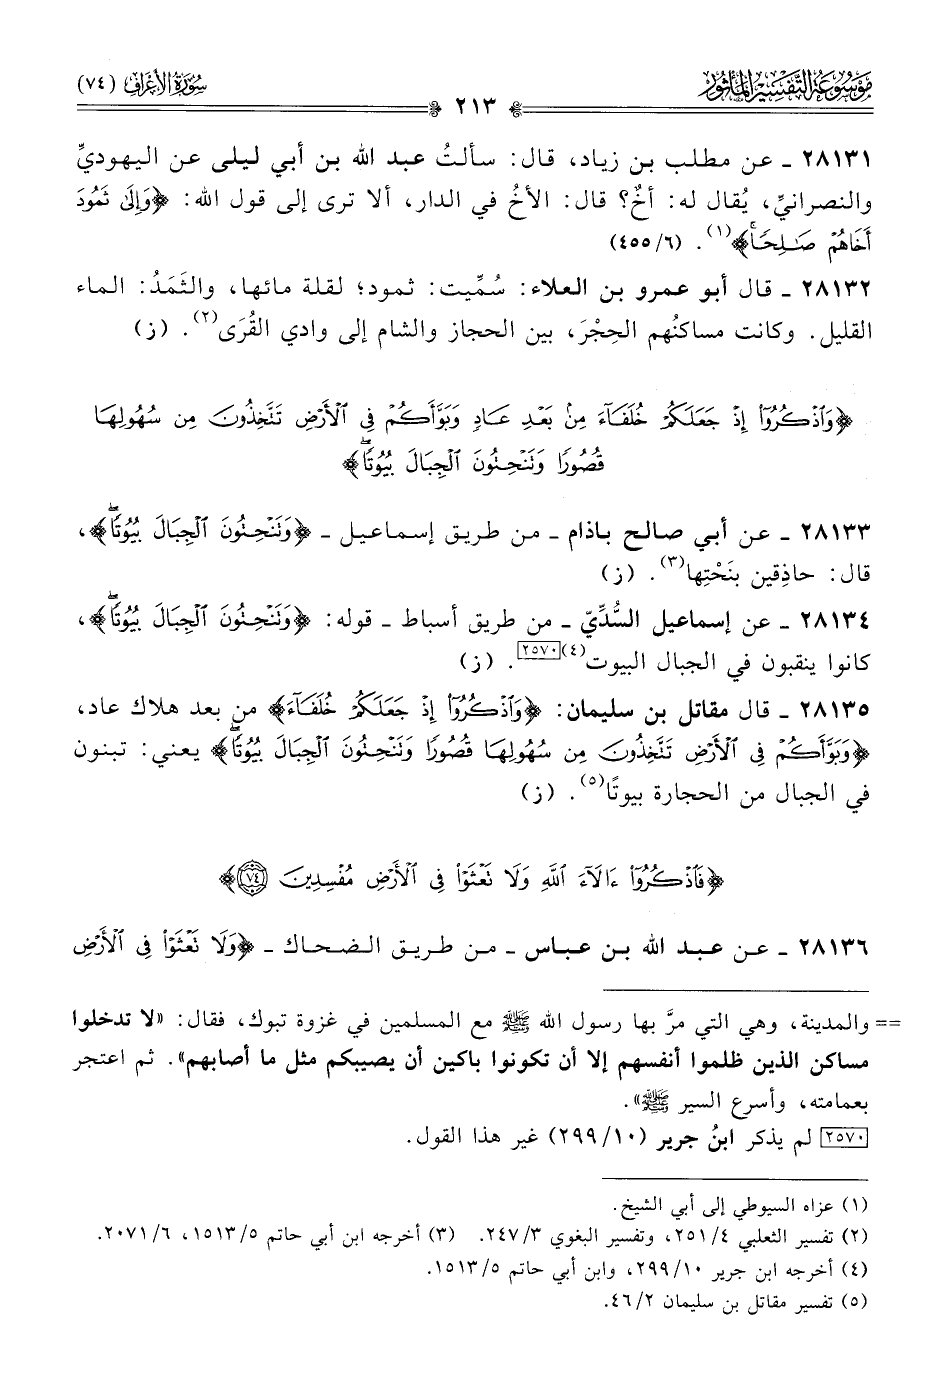 موسوعة التفسير المأثور
٢١٣
سورة الأعراف (٧٤)
٢٨١٣١ ـ عن مطلب بن زياد، قال: سألتُ عبد الله بن أبي ليلى عن اليهوديِّ
والنصرانيِّ، يُقال له: أخٌ؟ قال: الأخُ في الدار، ألا ترى إلى قول الله: ﴿وَإِلَىٰ ثَمُودَ
أَخَاهُمْ صَـٰلِحًاۚ﴾(١). (٤٥٥/٦)
٢٨١٣٢ ـ قال أبو عمرو بن العلاء: سُمِّيت: ثمود؛ لقلة مائها، والثَمَدُ: الماء
القليل. وكانت مساكنُهم الحِجْرَ، بين الحجاز والشام إلى وادي القُرَى(٢). (ز)
﴿وَٱذْكُرُوٓا۟ إِذْ جَعَلَكُمْ خُلَفَآءَ مِنۢ بَعْدِ عَادٍ وَبَوَّأَكُمْ فِى ٱلْأَرْضِ تَتَّخِذُونَ مِن سُهُولِهَا
قُصُورًا وَتَنْحِتُونَ ٱلْجِبَالَ بُيُوتًاۖ﴾
٢٨١٣٣ ـ عن أبي صالح باذام ـ من طريق إسماعيل ـ ﴿وَتَنْحِتُونَ ٱلْجِبَالَ بُيُوتًاۖ﴾،
قال: حاذِقين بنَحْتِها(٣). (ز)
٢٨١٣٤ ـ عن إسماعيل السُّدِّيّ ـ من طريق أسباط ـ قوله: ﴿وَتَنْحِتُونَ ٱلْجِبَالَ بُيُوتًاۖ﴾،
كانوا ينقبون في الجبال البيوت(٤)٢٥٧٠. (ز)
٢٨١٣٥ ـ قال مقاتل بن سليمان: ﴿وَٱذْكُرُوٓا۟ إِذْ جَعَلَكُمْ خُلَفَآءَ﴾ من بعد هلاك عاد،
﴿وَبَوَّأَكُمْ فِى ٱلْأَرْضِ تَتَّخِذُونَ مِن سُهُولِهَا قُصُورًا وَتَنْحِتُونَ ٱلْجِبَالَ بُيُوتًاۖ﴾ يعني: تبنون
في الجبال من الحجارة بيوتًا(٥). (ز)
﴿فَٱذْكُرُوٓا۟ ءَالَآءَ ٱللَّهِ وَلَا تَعْثَوْا۟ فِى ٱلْأَرْضِ مُفْسِدِينَ ٧٤﴾
٢٨١٣٦ ـ عن عبد الله بن عباس ـ من طريق الضحاك ـ ﴿وَلَا تَعْثَوْا۟ فِى ٱلْأَرْضِ
== والمدينة، وهي التي مرَّ بها رسول الله ﷺ مع المسلمين في غزوة تبوك، فقال: «لا تدخلوا
مساكن الذين ظلموا أنفسهم إلا أن تكونوا باكين أن يصيبكم مثل ما أصابهم». ثم اعتجر
بعمامته، وأسرع السير ﷺ».
٢٥٧٠ لم يذكر ابنُ جرير (٢٩٩/١٠) غير هذا القول.
(١) عزاه السيوطي إلى أبي الشيخ.
(٢) تفسير الثعلبي ٢٥١/٤، وتفسير البغوي ٢٤٧/٣. (٣) أخرجه ابن أبي حاتم ١٥١٣/٥، ٢٠٧١/٦.
(٤) أخرجه ابن جرير ٢٩٩/١٠، وابن أبي حاتم ١٥١٣/٥.
(٥) تفسير مقاتل بن سليمان ٤٦/٢.